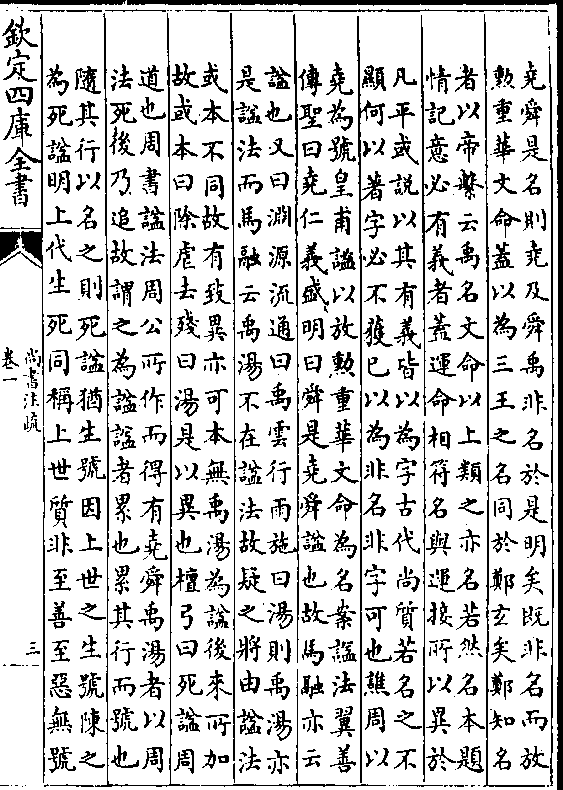 堯舜是名則堯及舜禹非名於是明矣既非名而放
勲重華文命蓋以為三王之名同於鄭玄矣鄭知名
者以帝繫云禹名文命以上類之亦名若然名本題
情記意必有義者蓋運命相符名與運接所以異於
凡平或説以其有義皆以為字古代尚質若名之不
顯何以著字必不獲已以為非名非字可也譙周以
堯為號皇甫謐以放勲重華文命為名案諡法翼善
傳聖曰堯仁義盛明曰舜是堯舜諡也故馬融亦云
諡也又曰淵源流通曰禹雲行雨施曰湯則禹湯亦
是諡法而馬融云禹湯不在諡法故疑之將由諡法
或本不同故有致異亦可本無禹湯為諡後來所加
故或本曰除虐去殘曰湯是以異也檀弓曰死諡周
道也周書諡法周公所作而得有堯舜禹湯者以周
法死後乃追故謂之為諡諡者累也累其行而號也
隨其行以名之則死諡猶生號因上世之生號陳之
為死諡明上代生死同稱上世質非至善至惡無號
欽定四庫全書
尚書注疏
卷一
三